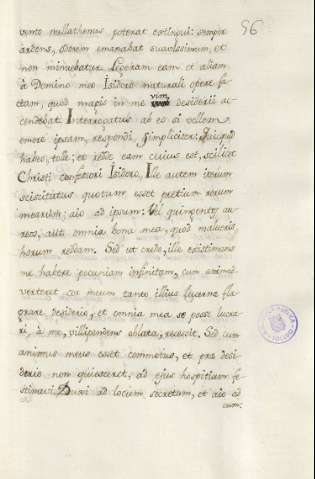 56
vento nullathenus poterat extingui: semper
ardens, odorem emanabat suavissimum, et
non minuebatur. Legeram eam et aliam
à Domino meo Isidoro naturali opere fa-
ctam, quod magis in me vim desiderii ac-
cendebat. Interrogatus ab eo si vellem
emere ipsam, respondi, simpliciter: quid
habes, tolle; et redde eam citius est, scilicet
Christi confessori Isidoro, Ille autem iterum
sciscitatus quotum esset pretium rerum
mearum; aio ad ipsum: Vel quingentos au-
reos, aut omnia bona mea, quod malueris,
horum reddam. Sed ut credo, ille existimans
me habere pecuniam infinitam, cum animad-
verteret cor meum tanto illius lucerne fla-
grare desiderio, et omnia mea se posse lucra-
ri, à me, vilipendens oblata, recessit. Sed cum
animus meus esset commotus, et prae desi-
derio non quiesceret, ad ejus hospitium fe-
stinavi. Duxi ad locum secretum, et aio ad
eum: